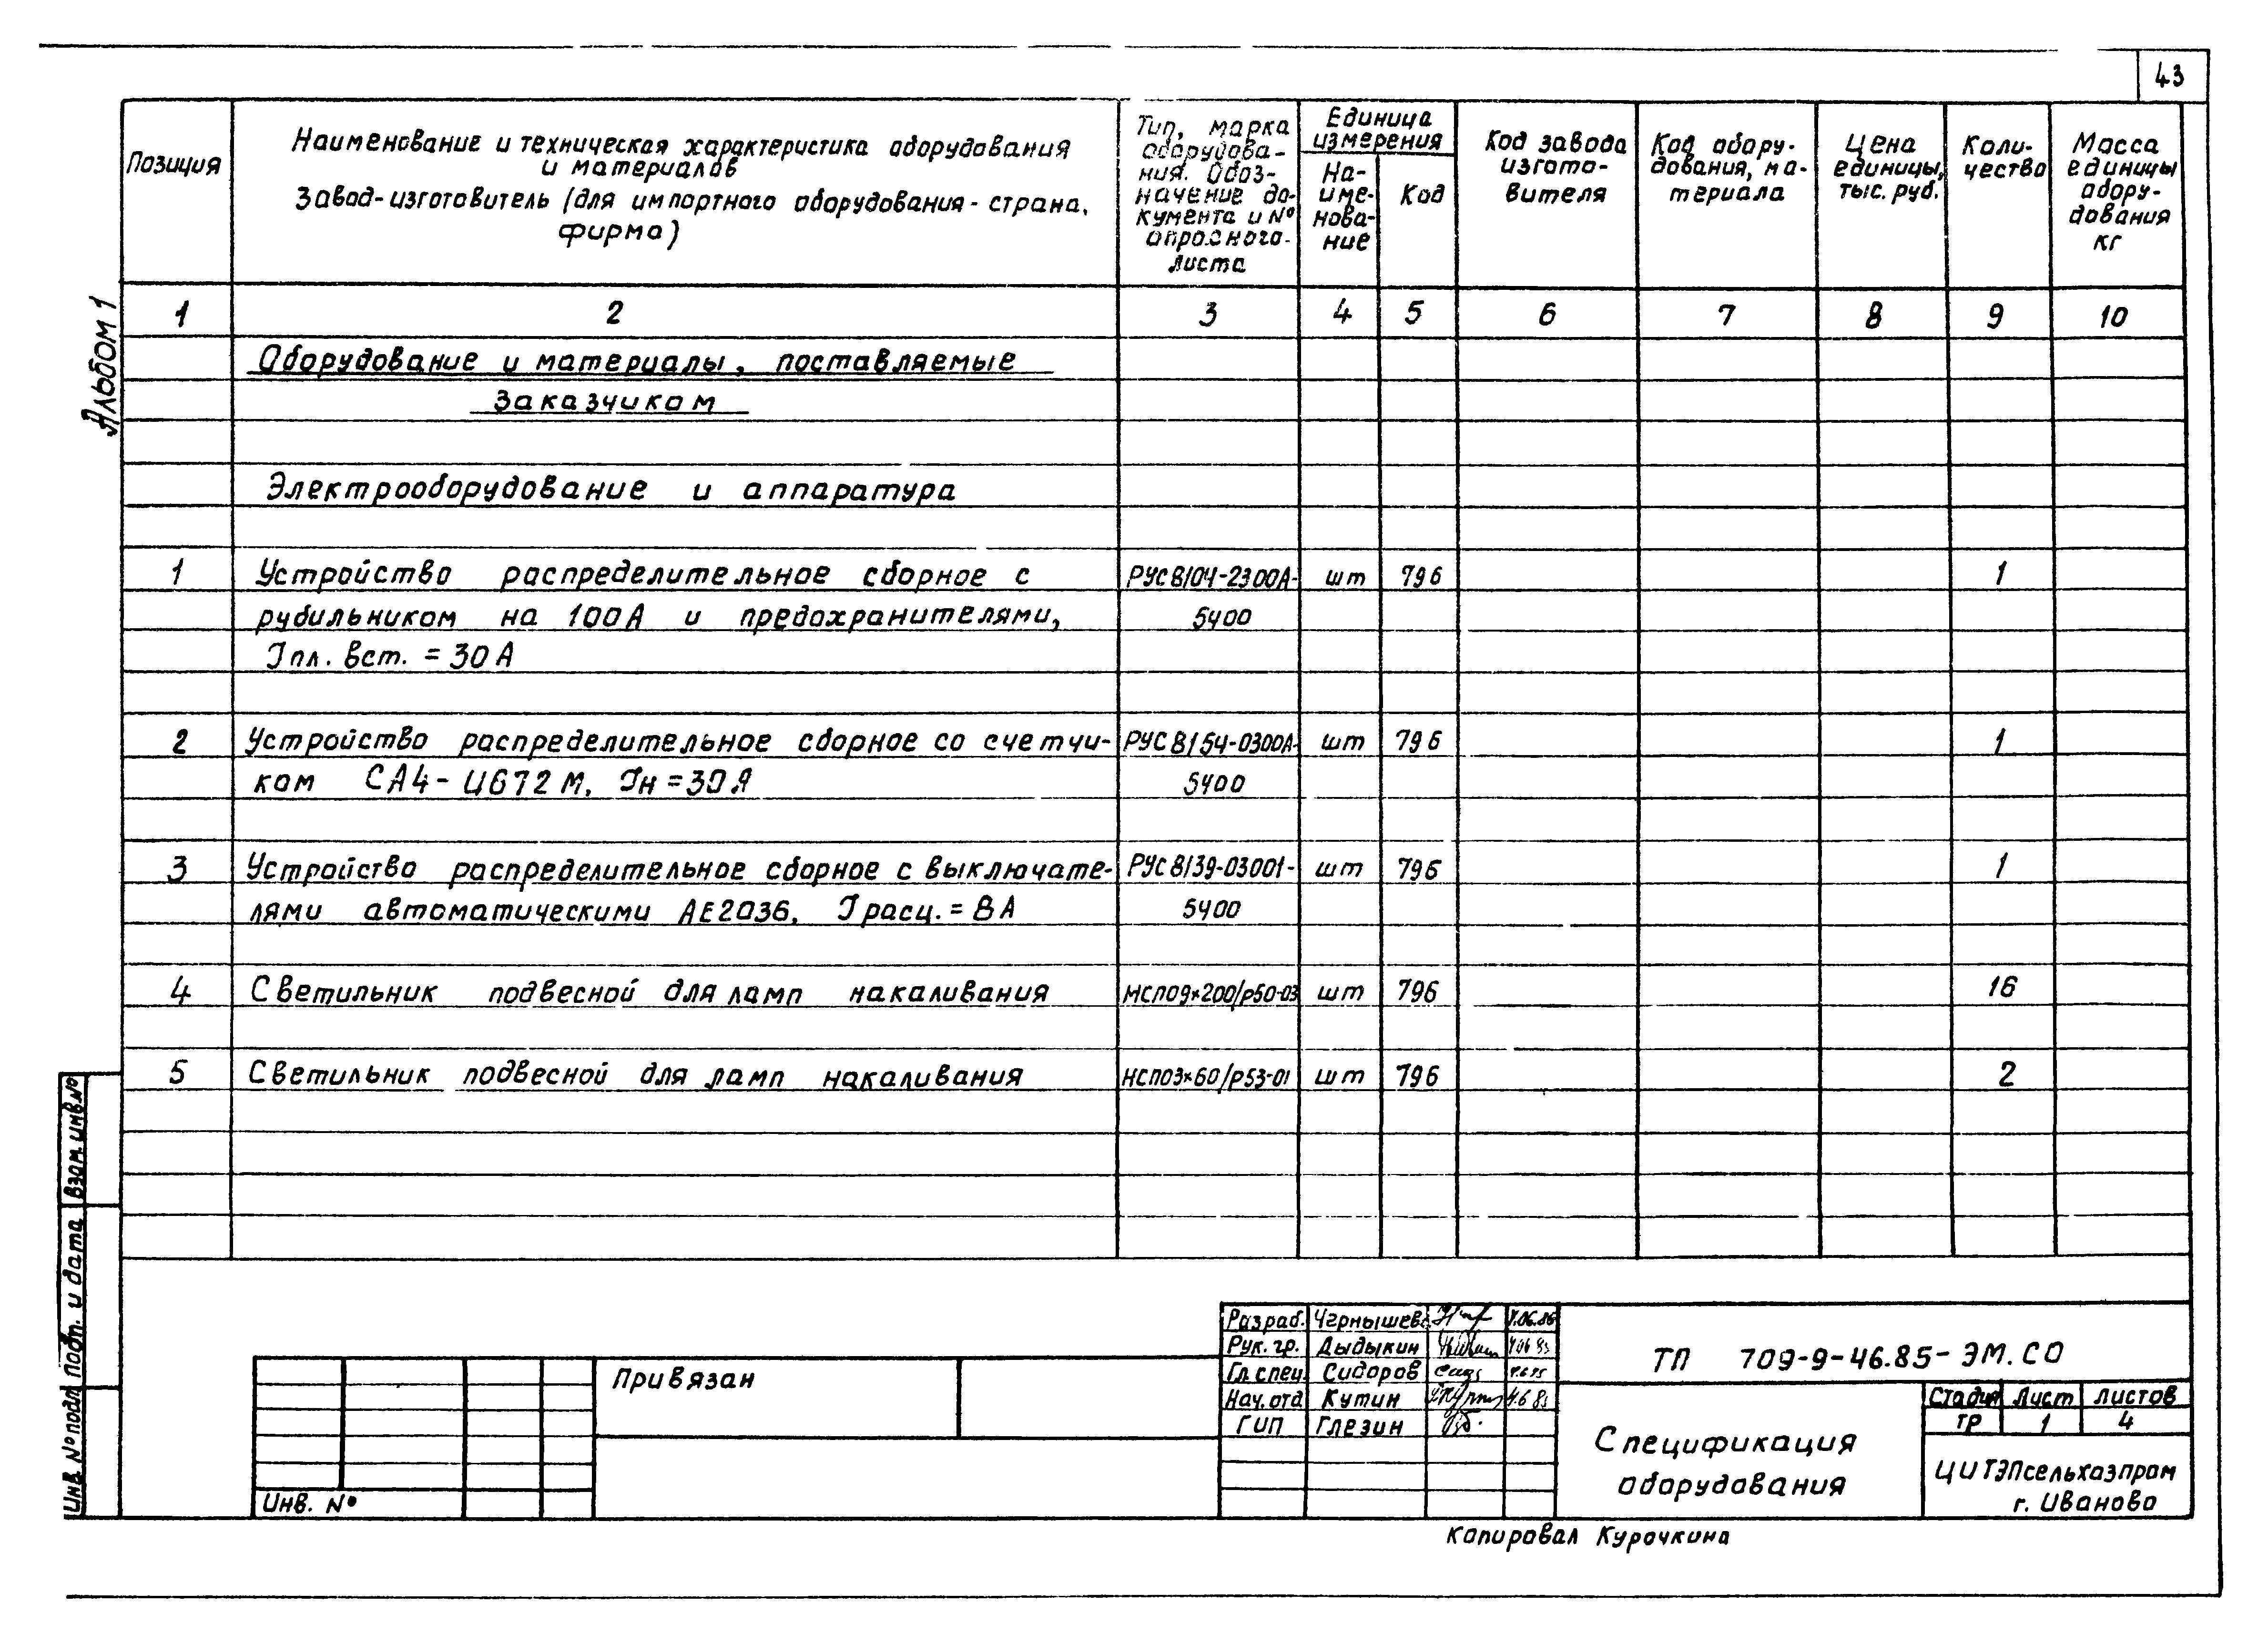 43
Альбом 1
Позиция
Наименование и техническая характеристика оборудования
и материалов
Завод-изготовитель (для импортного оборудования - страна,
фирма)
Тип, марка
оборудова-
ния. Обоз-
начение до-
кумента и №
опросного
листа
Единица
измерения
На-
име-
нова-
ние
Код
Код завода
изгото-
вителя
Код обору-
дования, ма-
териала
Цена
единицы,
тыс. руб.
Коли-
чество
Масса
единицы
обору-
дования
кг
1 2 3 4 5 6 7 8 9 10
Оборудование и материалы, поставляемые
Заказчиком
Электрооборудование и аппаратура
1 Устройство распределительное сборное с РУС8104-2300А- шт 796 1
рубильником на 100А и предохранителями, 5400
Iпл. вст. = 30А
2 Устройство распределительное сборное со счетчи- РУС8154-0300А- шт 796 1
ком СА4-И672М, Iн=30А 5400
3 Устройство распределительное сборное с выключате- РУС8139-03001- шт 796 1
лями автоматическими АЕ2036, Iрасц.=8А 5400
4 Светильник подвесной для ламп накаливания НСП09×200/р50-03 шт 796 16
5 Светильник подвесной для ламп накаливания НСП03×60/р53-01 шт 796 2
Взам инв.№
Подп. и дата
Инв. № подл
Привязан
Инв. №
Разраб. Чернышева
Рук. гр. Дыдыкин
Гл.спец. Сидоров
Нач. отд Кутин
ГИП Глезин
ТП 709-9-46.85-ЭМ.СО
Спецификация
оборудования
Стадия Лист Листов
ТР 1 4
ЦИТЭПсельхозпром
г. Иваново
Копировал Курочкина